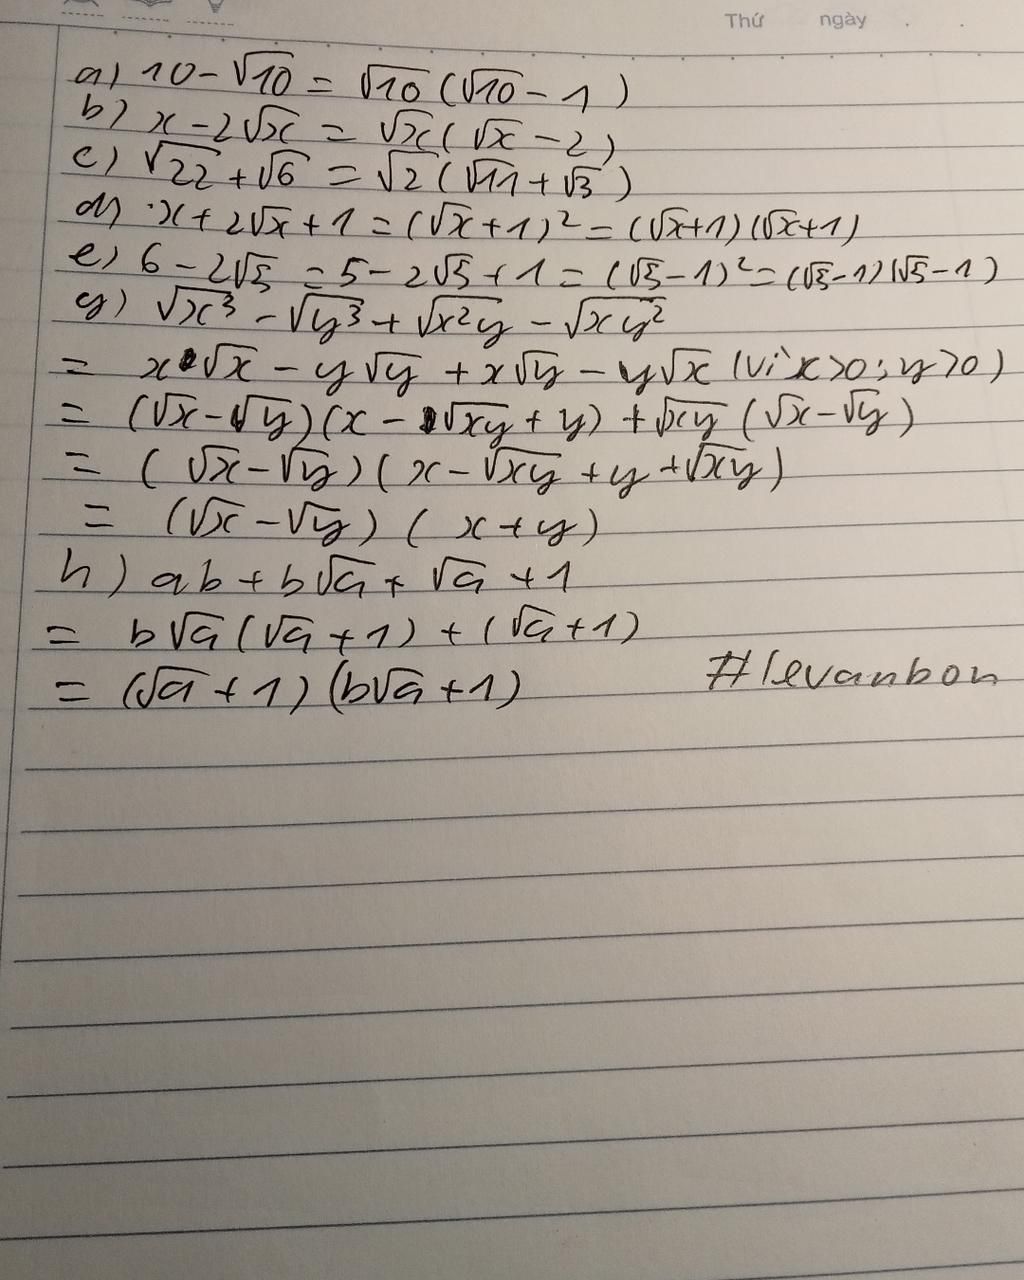 Thứ ngày . .
a) 10 - √10 = √10 (√10 - 1)
b) x - 2√x = √x (√x - 2)
c) √22 + √6 = √2 (√11 + √3)
d) x + 2√x + 1 = (√x + 1)² = (√x+1)(√x+1)
e) 6 - 2√5 = 5 - 2√5 + 1 = (√5 - 1)² = (√5 - 1)(√5 - 1)
g) √x³ - √y³ + √x²y - √xy²
= x√x - y√y + x√y - y√x (vì x>0; y>0)
= (√x - √y)(x - √xy + y) + √xy (√x - √y)
= (√x - √y)(x - √xy + y + √xy)
= (√x - √y) (x + y)
h) ab + b√a + √a + 1
= b√a (√a + 1) + (√a + 1)
= (√a + 1)(b√a + 1) #levanbon